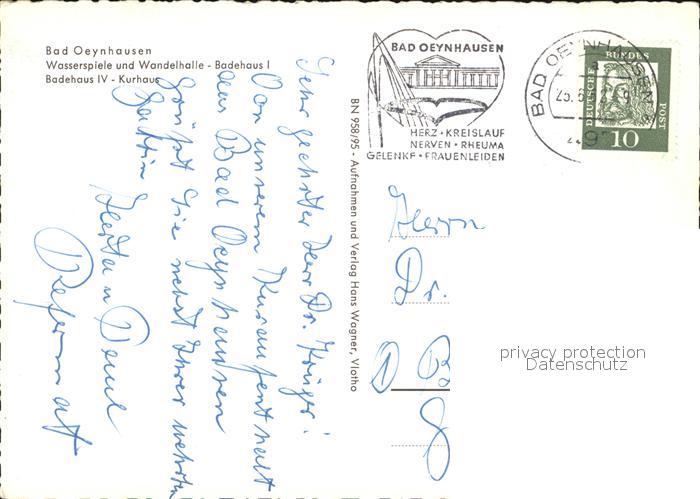 Bad Oeynhausen
Wasserspiele und Wandelhalle - Badehaus I
Badehaus IV - Kurhaus
Sehr geehrter Herr Dr. Krüger!
Von unserem Kuraufenthalt
aus Bad Oeynhausen
grüßt Sie nebst Ihrer werten
Gattin
Herta u
BN 958/95 - Aufnahmen und Verlag Hans Wagner, Vlotho
BAD OEYNHAUSEN
HERZ • KREISLAUF
NERVEN • RHEUMA
GELENKE • FRAUENLEIDEN
BAD OEYNHAUSEN
DEUTSCHE
BUNDES
POST
10
Herrn
Dr.
privacy protection
Datenschutz